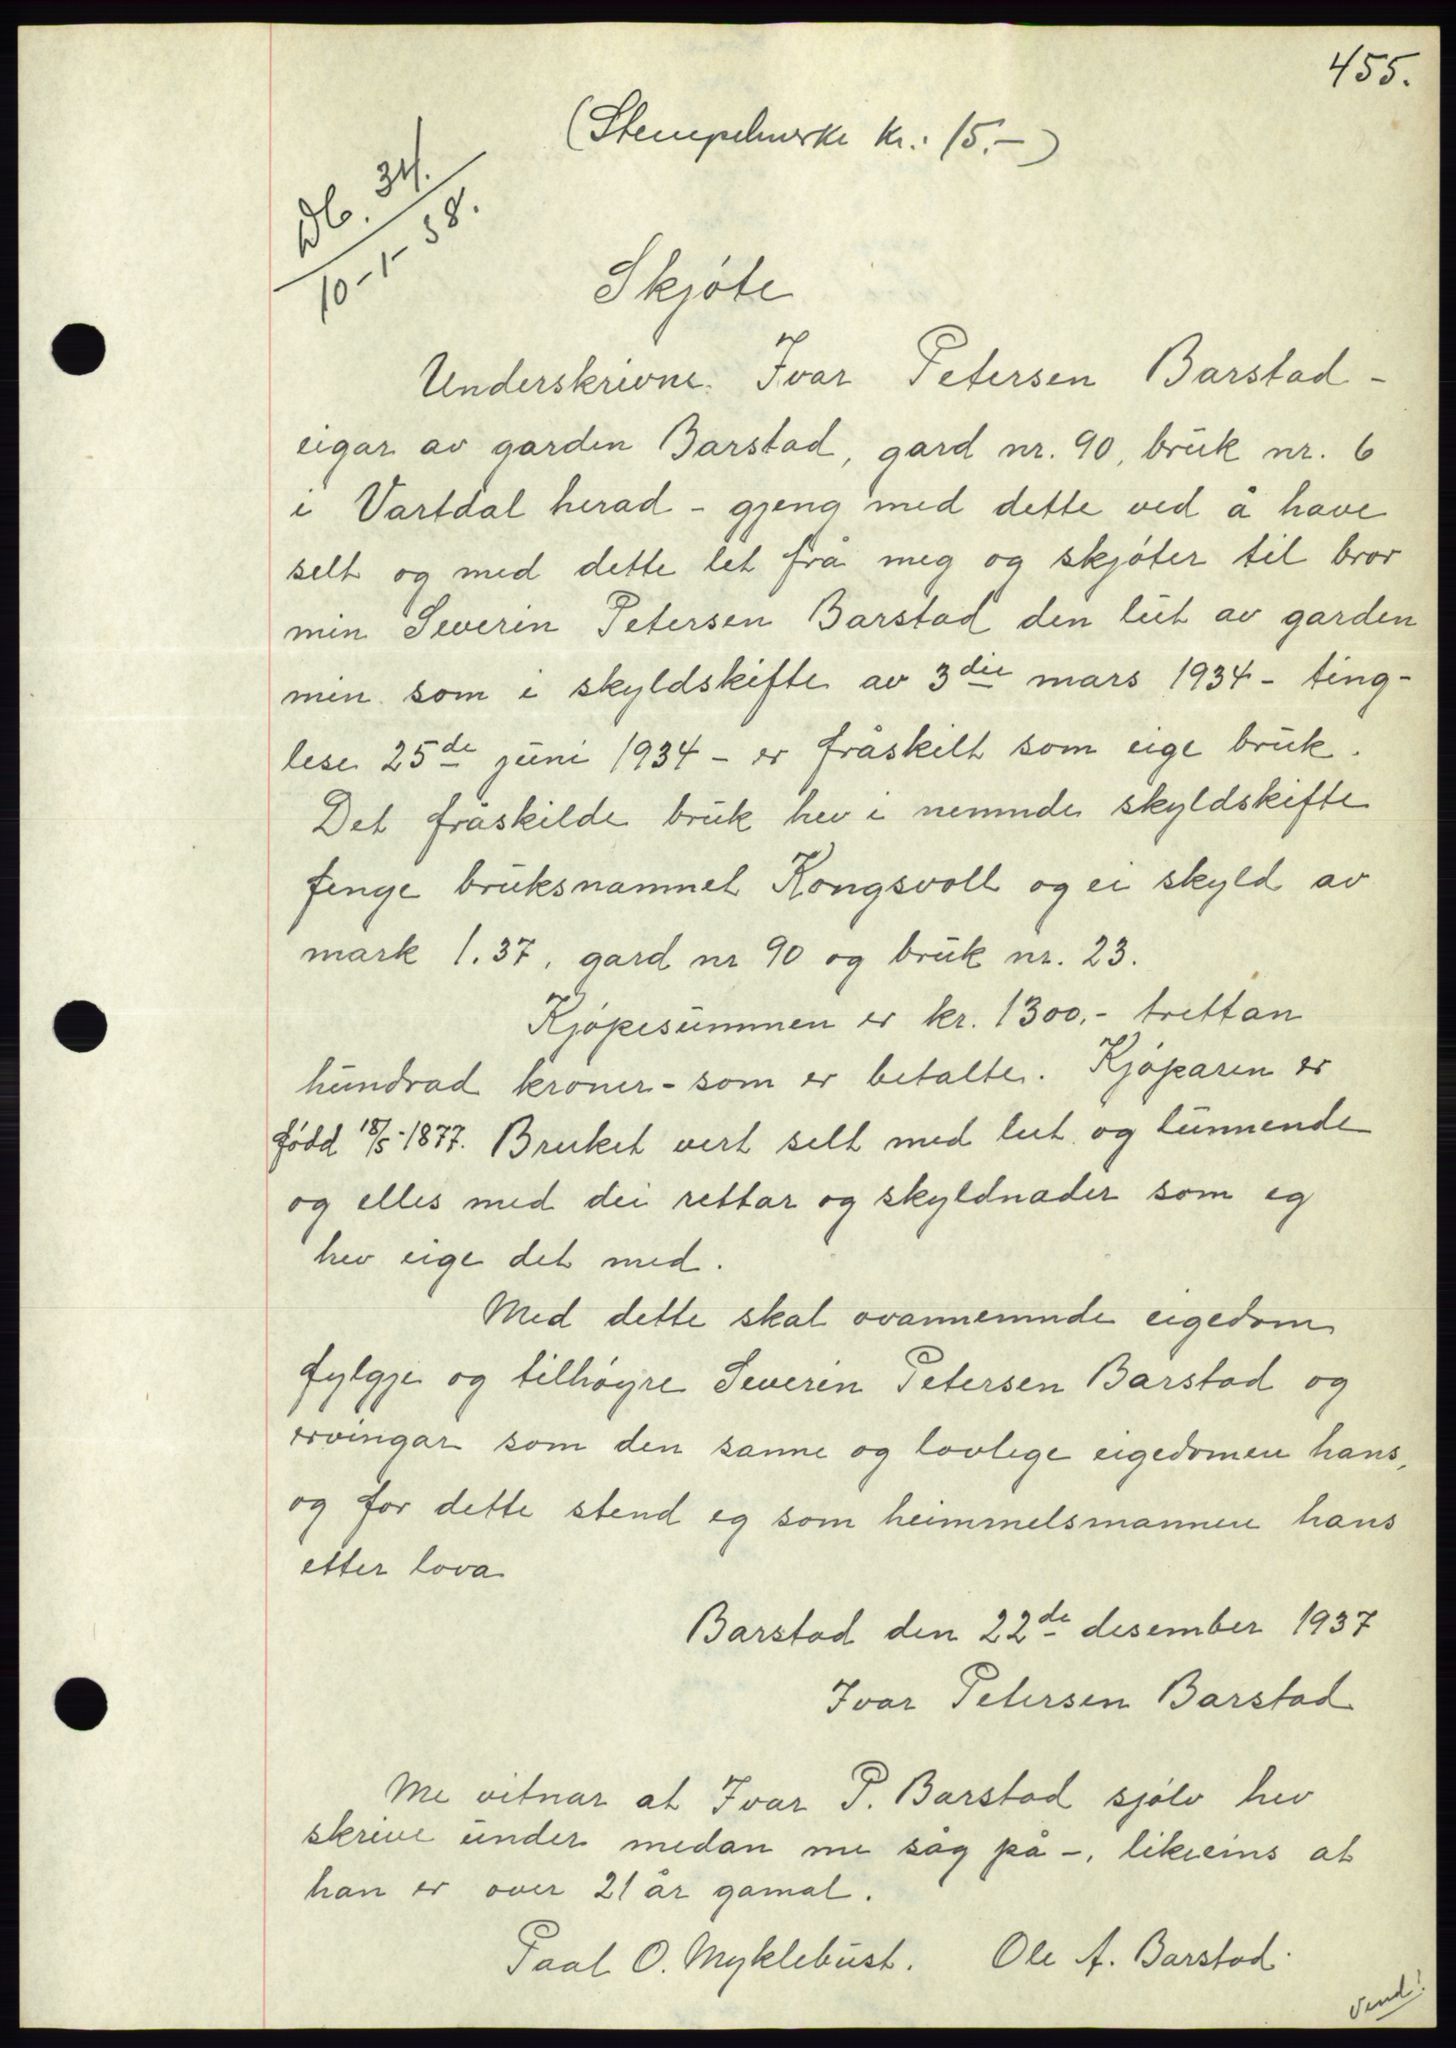 455.
(Stempelmerke kr.: 15.-)
Db. 34.
10-1-38.
Skjøte
Underskrivne Ivar Petersen Barstad -
eigar av garden Barstad, gard nr. 90, bruk nr. 6
i Vartdal herad - gjeng med dette ved å have
selt og med dette let frå meg og skjøter til bror
min Severin Petersen Barstad den lut av garden
min som i skyldskifte av 3die mars 1934 - ting-
lese 25de juni 1934 - er fråskilt som eige bruk.
Det fråskilde bruk hev i nemnde skyldskifte
fenge bruksnamnet Kongsvoll og ei skyld av
mark 1.37, gard nr 90 og bruk nr. 23.
Kjøpesummen er kr. 1300,- trettan
hundrad kroner - som er betalte. Kjøparen er
fødd 18/5-1877. Bruket vert selt med lut og lunnende
og elles med dei rettar og skyldnader som eg
hev eige det med.
Med dette skal ovannemnde eigedom
fylgje og tilhøyre Severin Petersen Barstad og
ervingar som den sanne og lovlege eigedomen hans,
og for dette stend eg som heimmelsmannen hans
etter lova
Barstad den 22de desember 1937
Ivar Petersen Barstad
Me vitnar at Ivar P. Barstad sjølv hev
skrive under medan me såg på -, likeeins at
han er over 21 år gamal.
Paal O. Myklebust. Ole A. Barstad.
Vend!